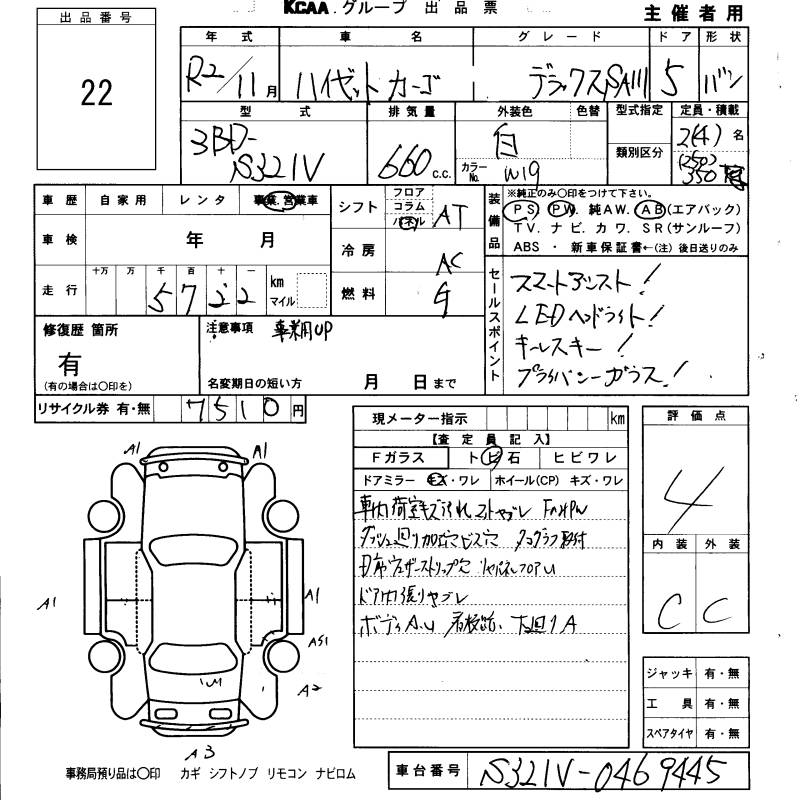 KCAA グループ 出品票 主催者用
出品番号
22
年式 車名 グレード ドア 形状
R2/11月 ハイゼットカーゴ デラックスSAIII 5 バン
型式 排気量 外装色 色替 型式指定 定員・積載
3BD-S321V 660c.c. 白 カラーNo. W19 類別区分 2(4)名 (250) 350
車歴 自家用 レンタ 事業.営業車
車検 年 月
走行 十万 万 千 百 十 一 km マイル
5722
シフト フロア コラム パネル AT
冷房 AC
燃料 G
装備品 ※純正のみ○印をつけて下さい。
PS. PW. 純AW. AB(エアバック)
TV. ナビ. カワ. SR(サンルーフ)
ABS ・ 新車保証書←(注) 後日送りのみ
セールスポイント
スマートアシスト!
LEDヘッドライト!
キーレスキー!
プライバシーガラス!
修復歴 箇所
有
(有の場合は○印を)
注意事項 事業用UP
名変期日の短い方 月 日まで
リサイクル券 有・無 7510円
現メーター指示 km
【査定員記入】
Fガラス トビ石 ヒビワレ
ドアミラー キズ・ワレ ホイール(CP) キズ・ワレ
車内荷室キズ汚れ ストヤブレ
ダッシュ回り加工穴ビス穴 タコグラフ取付
ウェザーストリップ穴
ドア内張りヤブレ
ボディA.U 看板跡. 下回りA
評価点
4
内装 外装
C C
ジャッキ 有・無
工具 有・無
スペアタイヤ 有・無
A1 A1
A1 A1
AS1
A2
A3
事務局預り品は○印 カギ シフトノブ リモコン ナビロム
車台番号 S321V-0469445